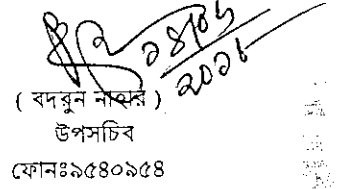 ১৪/০৬
২০১৮
( বদরুন নাহার )
উপসচিব
ফোনঃ৯৫৪০৯৫৪